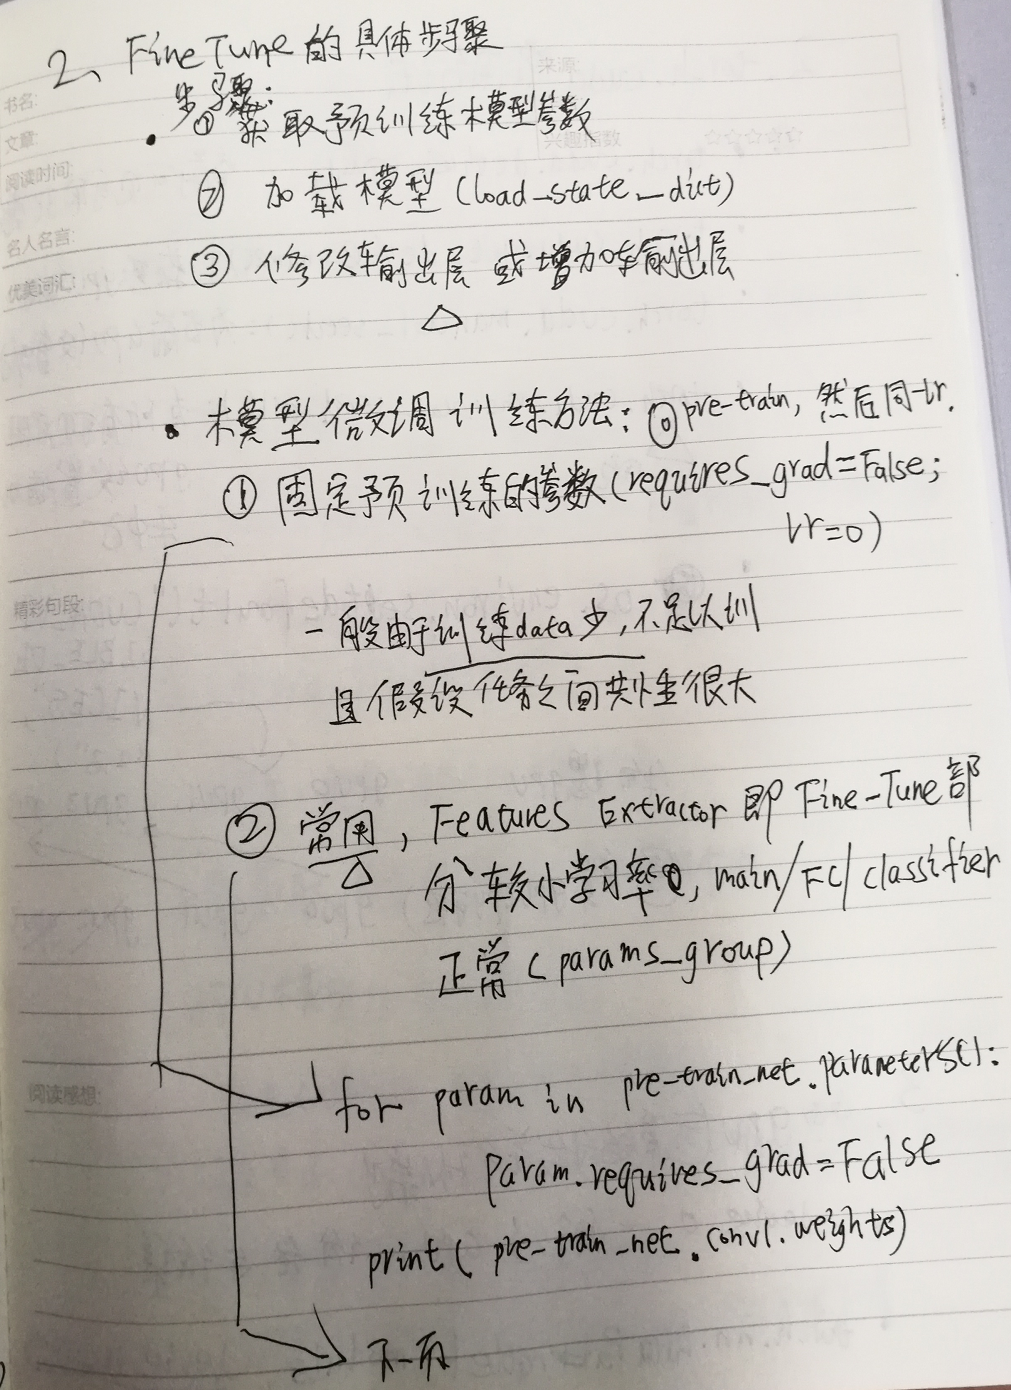 2、Fine Tune 的具体步骤
步骤：
① 获取预训练模型参数
② 加载模型（load_state_dict）
③ 修改输出层 或增加输出层
模型微调训练方法：⓪pre-train，然后同lr.
① 固定预训练的参数（requires_grad=False；
lr=0）
一般由于训练data少，不足以训
且假设任务之间共性很大
② 常用，Features Extractor 即 Fine-Tune部
分 较小学习率，main/FC/classifier
正常（params_group）
for param in pre-train_net.parameters():
param.requires_grad=False
print( pre-train_net.conv1.weights)
下一页
书名:
文章:
阅读时间:
名人名言:
优美词汇:
精彩句段:
阅读感想:
来源:
兴趣指数 ☆☆☆☆☆